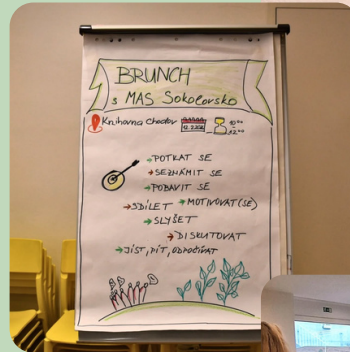 BRUNCH
s MAS Sokolovsko
Knihovna Chodov
10⁰⁰
12⁰⁰
→ POTKAT SE
→ SEZNÁMIT SE
→ POBAVIT SE
→ SDÍLET → MOTIVOVAT (SE)
→ SLYŠET
→ DISKUTOVAT
→ JÍST, PÍT, ODPOČÍVAT